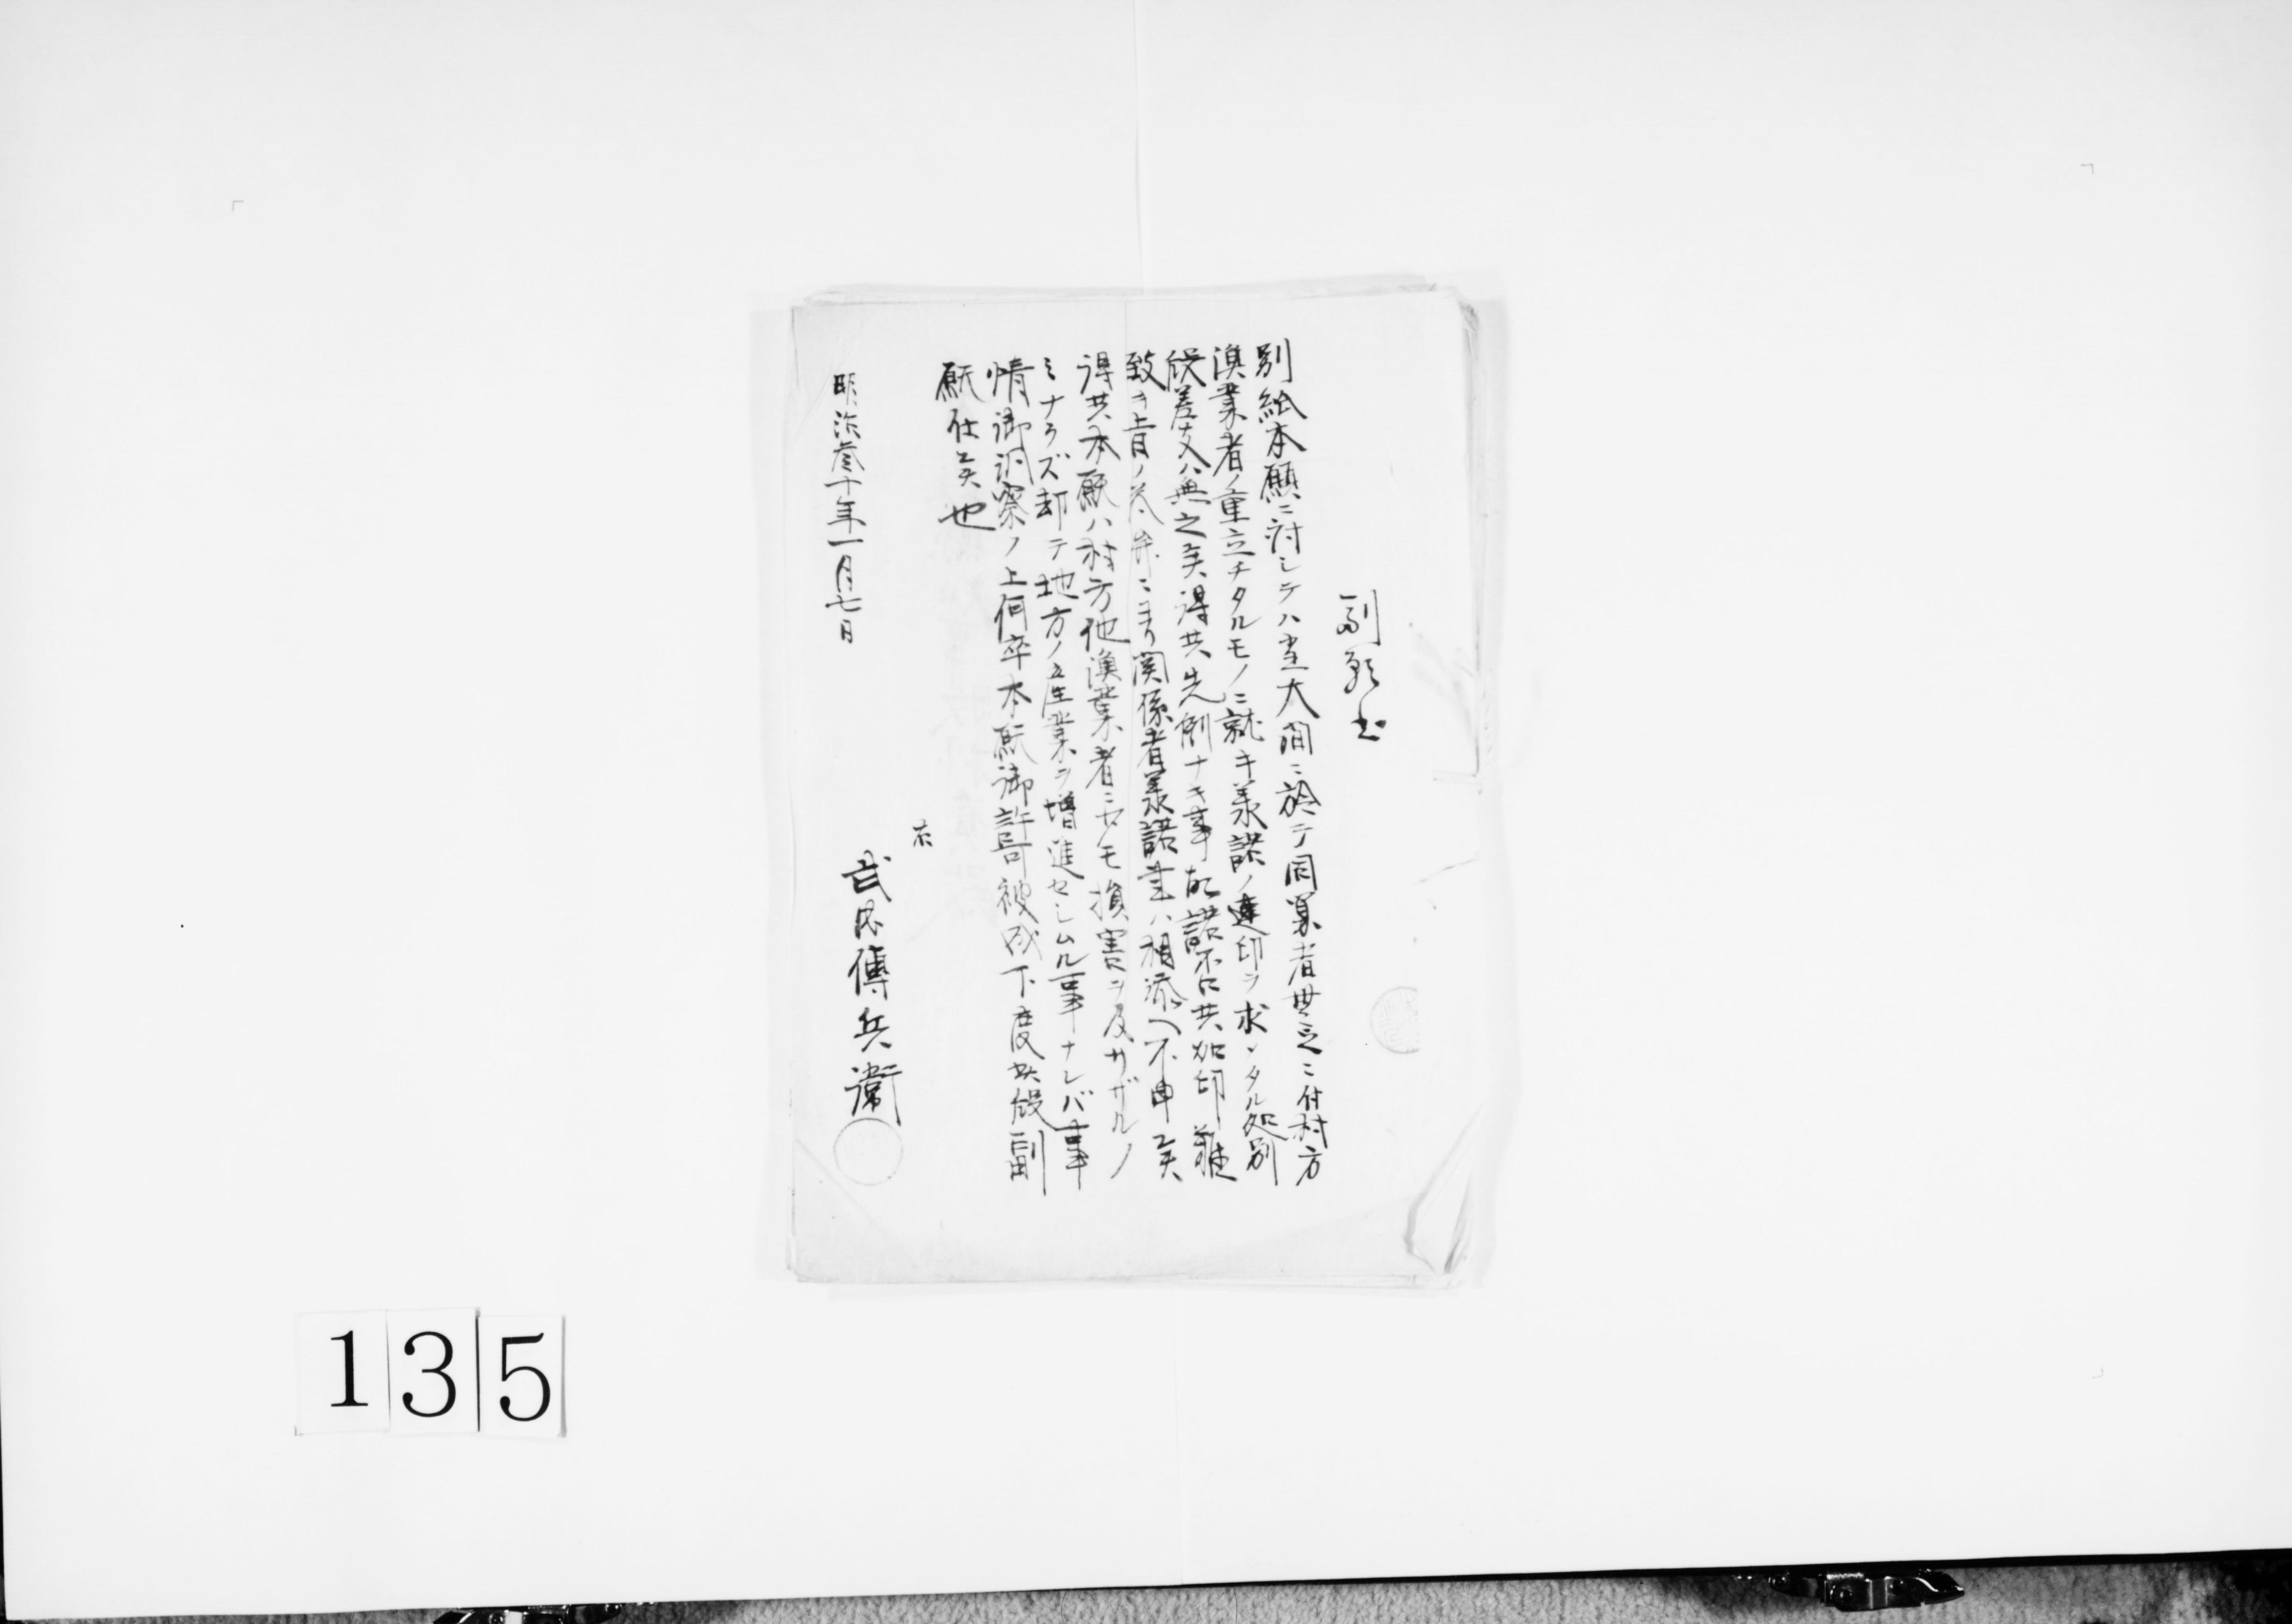 副願書
別紙本願ニ対シテハ当大間ニ於テ同業者無之ニ付村方
漁業者ノ重立チタルモノニ就キ義諾ノ連印ヲ求メタル処別
段差支ハ無之候得共先例ナキ事故諾否ニ共加印難
致キ旨ノ答弁ニヨリ関係者義諾書ハ相添ヘ不申候
得共本願ハ村方他漁業者ニセモ損害ヲ及サザルノ
ミナラズ却テ地方ノ産業ヲ増進セシムル事ナレバ事
情御洞察ノ上何卒本願御許可被成下度此段副
願仕候也
右
明治参十年一月七日
武内傳兵衛
135